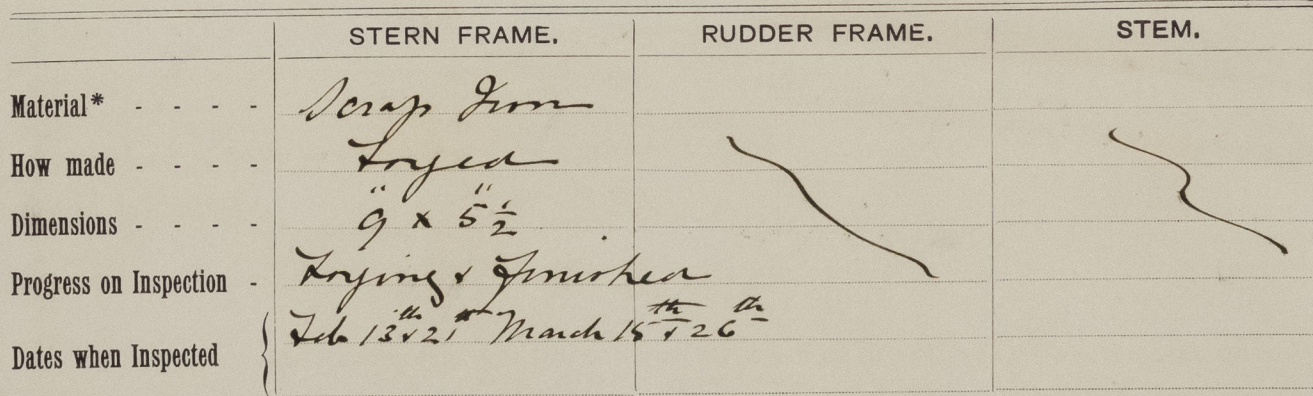 STERN FRAME. RUDDER FRAME. STEM.
Material* - - - - Scrap Iron
How made - - - - Forged
Dimensions - - - - 9" x 5 1/2"
Progress on Inspection - Forging & finished
Dates when Inspected Feb 13th & 21st March 15th & 26th